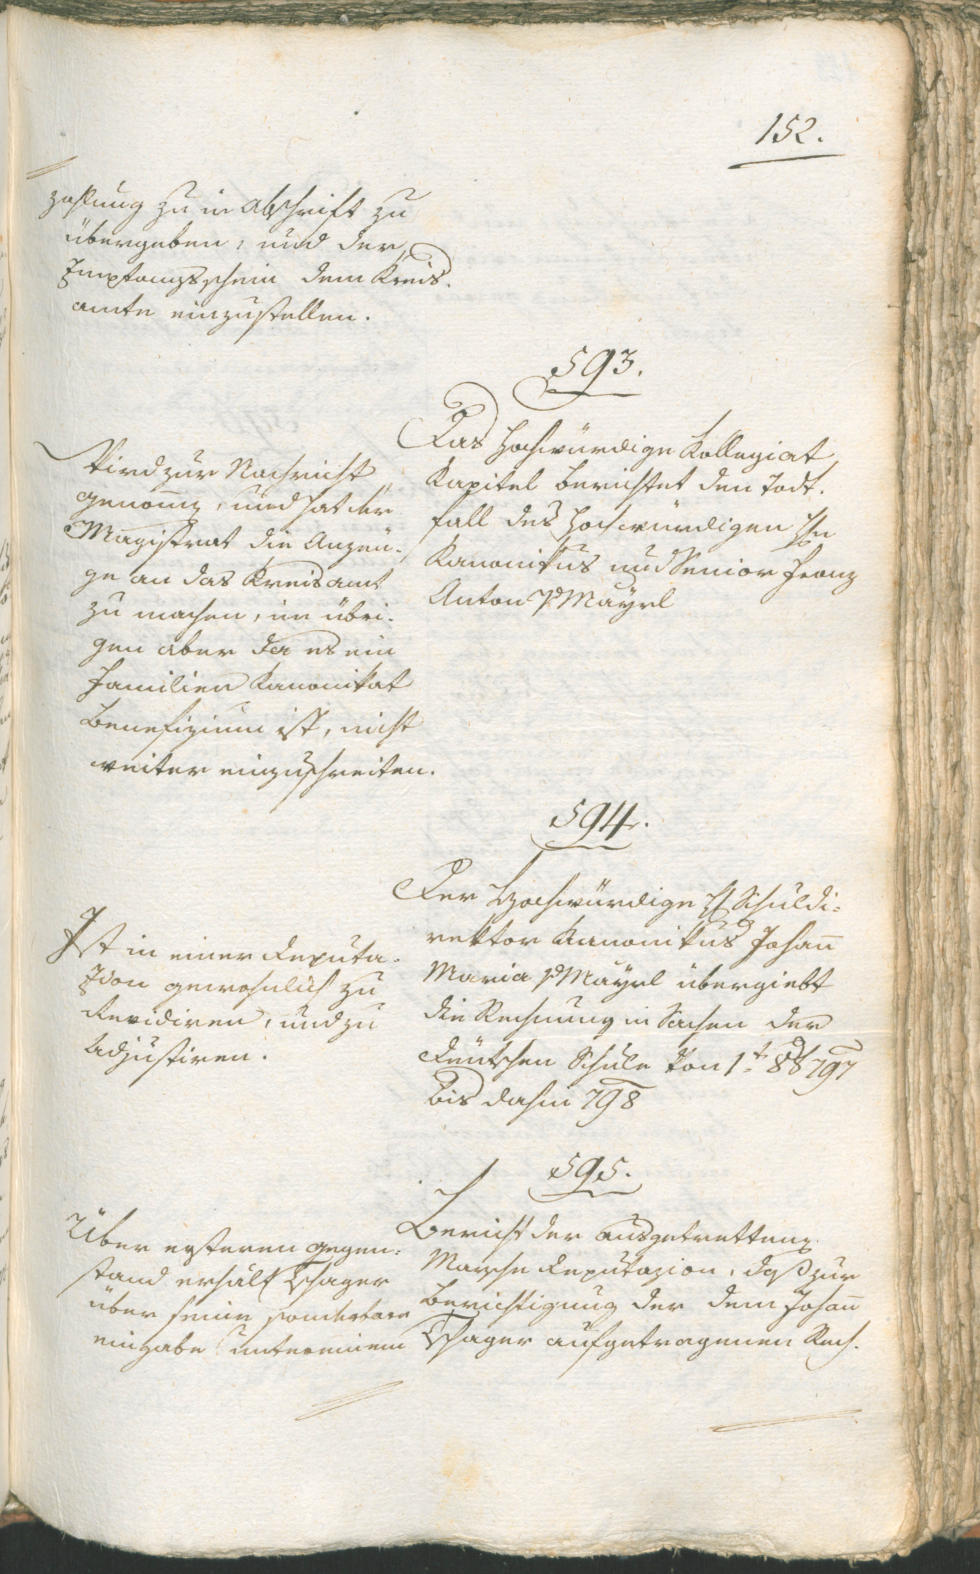 152.
zahlung zu in Abschrift zu
übergeben, und der
Empfangsschein dem Kreis-
amte einzustellen.
593.
Das Hochwürdige Kollegiat
Kapitel berichtet den Todt-
fall des Hochwürdigen Hn
Kanonikus und Senior Franz
Anton v Mayrl
Wird zur Nachricht
genomen, und hat der
Magistrat die Anzeü-
ge an das Kreisamt
zu machen, im übri-
gen aber da es ein
Familien Kanonikat
Benefizium ist, nicht
weiter einzuschreiten.
594.
Der Hochwürdige H Schuldi-
rektor Kanonikus Johann
Maria v Mayrl übergiebt
die Rechnung in Sachen der
Deutschen Schule von 1t 797
bis dahin 798
Ist in einer Deputa-
zion gewohnlich zu
Revidiren, und zu
Adjustiren.
595.
Bericht der ausgetrettenen
Marsche Deputazion, daß zur
Berichtigung der dem Johann
Tschager aufgetragenen Rech-
Über ersteren Gegen-
stand erhält Tschager
über seine sonderbare
eingabe unter einem